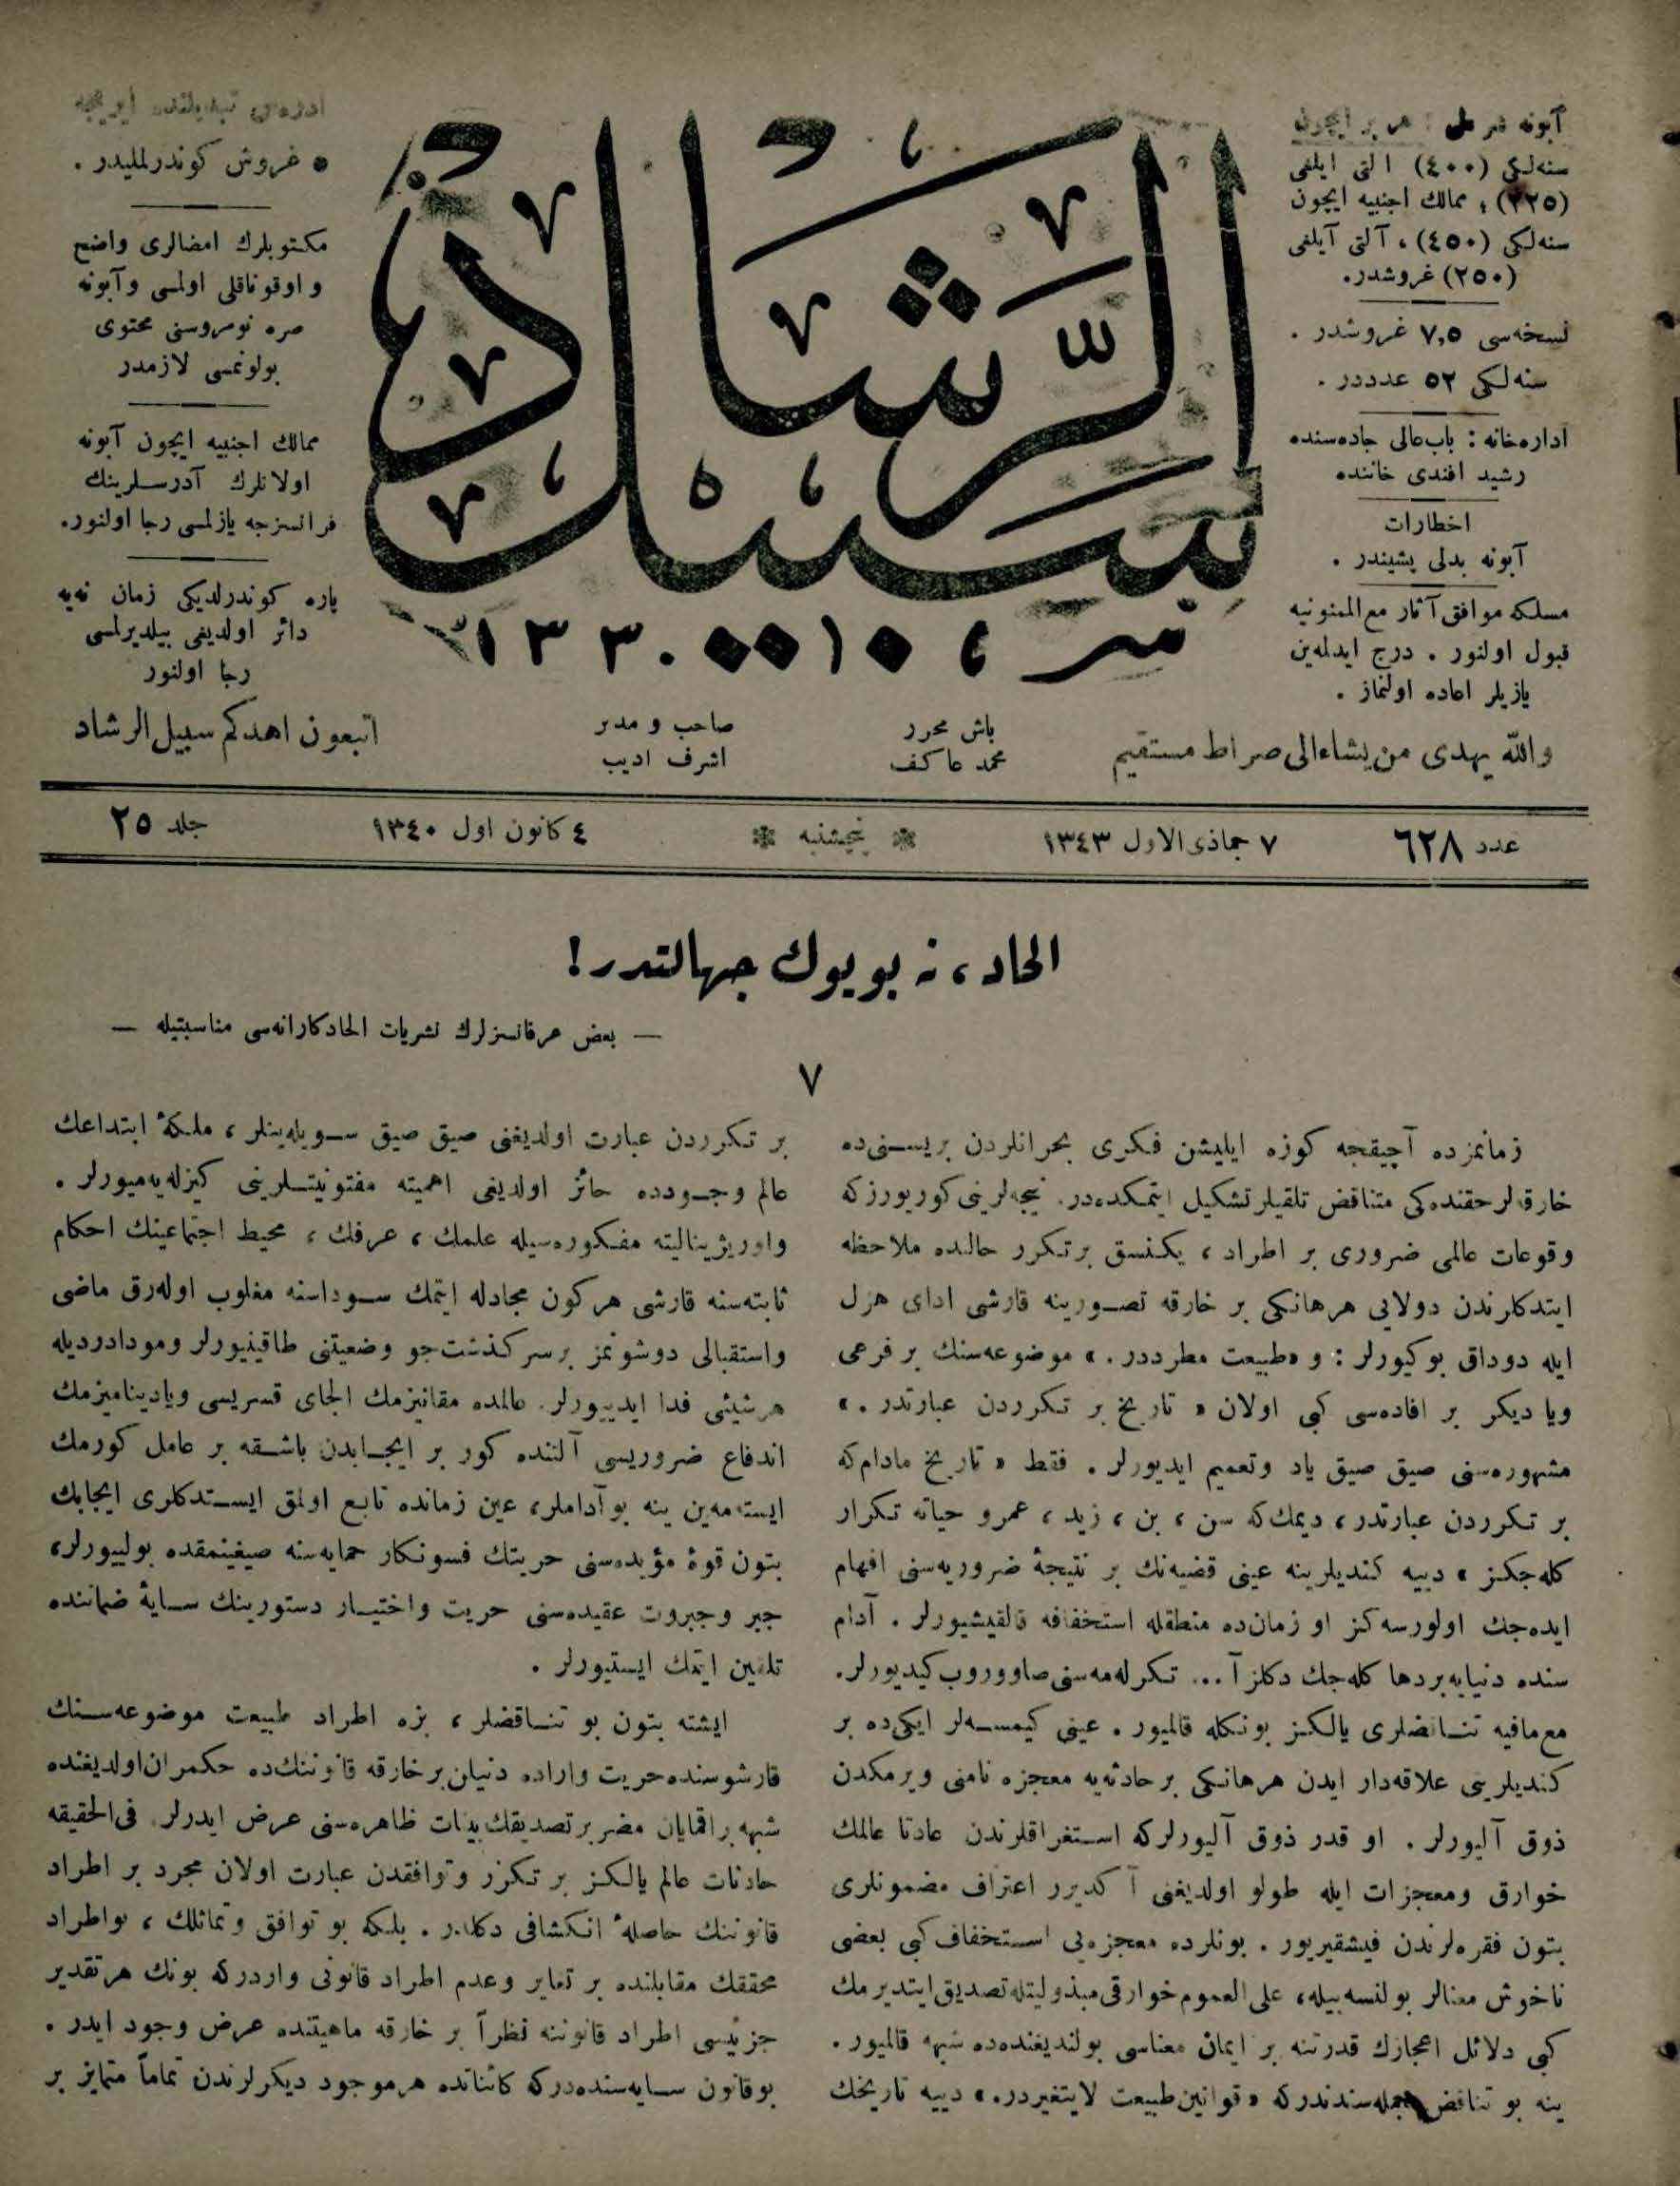 آبونه شرطی : هر یر ایچون
سنه‌لكی (٤٠٠) التی ایلغی
(٢٢٥)، ممالك اجنبیه ایچون
سنه‌لكی (٤٥٠)، آلتی آیلغی
(٢٥٠) غروشدر.
نسخه‌سی ٧,٥ غروشدر .
سنه‌لكی ٥٢ عدددر .
اداره‌خانه : باب‌عالی جاده‌سنده
رشید افندی خاننده
اخطارات
آبونه بدلی پشیندر .
مسلكه موافق آثار مع‌الممنونیه
قبول اولنور . درج ایدلمه‌ین
یازیلر اعاده اولنماز .
سبیل الرشاد
ادره‌س تبدیلنده آیریجه
٥ غروش كوندرلملیدر .
مكتوبلرك امضالری واضح
و اوقوناقلی اولمسی و آبونه
صره نومروسنی محتوی
بولونمسی لازمدر
ممالك اجنبیه ایچون آبونه
اولانلرك آدرسلرینك
فرانسزجه یازلمسی رجا اولنور.
پاره كوندرلدیكی زمان نه‌یه
دائر اولدیغی بیلدیرلمسی
رجا اولنور
والله یهدی من یشاء الی صراط مستقیم
باش محرر
محمد عاكف
صاحب و مدیر
اشرف ادیب
اتبعون اهدكم سبیل الرشاد
عدد ٦٢٨
٧ جماذی الاول ١٣٤٣
پنجشنبه
٤ كانون اول ١٣٤٠
جلد ٢٥
الحاد، نه بویوك جهالتدر!
— بعض عرفانسزلرك نشریات الحادكارانه‌سی مناسبتیله —
٧
زمانمزده آچیقجه كوزه ایلیشن فكری بحرانلردن بریسنی‌ده
خارقه‌لر حقنده‌كی متناقض تلقیلر تشكیل ایتمكده‌در. نیجه‌لرینی كوریورزكه
وقوعات عالمی ضروری بر اطراد ، یكنسق بر تكرر حالنده ملاحظه
ایتدكلرندن دولایی هرهانكی بر خارقه تصورینه قارشی ادای هزل
ایله دوداق بوكیورلر : و «طبیعت مطرددر .» موضوعه‌سنك بر فرعی
ویا دیكر بر افاده‌سی كبی اولان « تاریخ بر تكرردن عبارتدر .»
مشهوره‌سنی صیق صیق یاد وتعمیم ایدیورلر . فقط « تاریخ مادام‌كه
بر تكرردن عبارتدر ، دیمك‌كه سن ، بن ، زید ، عمرو حیاته تكرار
كله‌جكز » دییه كندیلرینه عینی قضیه‌نك بر نتیجهٔ ضروریه‌سنی افهام
ایده‌جك اولورسه‌كز او زمان‌ده منطقله استخفافه قالقیشیورلر . آدام
سنده دنیایه بردها كله‌جك دكلز آ ... تكرله‌مه‌سنی صاووروب كیدیورلر.
مع‌مافیه تناقضلری یالكز بونكله قالمیور . عینی كیمسه‌لر ایكی‌ده بر
كندیلرینی علاقه‌دار ایدن هرهانكی بر حادثه‌یه معجزه نامنی ویرمكدن
ذوق آلیورلر . او قدر ذوق آلیورلركه استغراقلرندن عادتا عالمك
خوارق ومعجزات ایله طولو اولدیغنی آكدیرر اعتراف مضمونلری
بتون فقره‌لرندن فیشقیریور . بونلرده معجزه‌یی استخفاف كبی بعضی
ناخوش معنالر بولنسه بیله، علی‌العموم خوارقی مبذولیتله تصدیق ایتدیرمك
كبی دلائل اعجازك قدرتنه بر ایمان معناسی بولندیغنده‌ده شبهه قالمیور .
ینه بو تناقض جمله‌سندندركه «قوانین طبیعت لایتغیردر.» دییه تاریخك
بر تكرردن عبارت اولدیغنی صیق صیق سویله‌ینلر ، ملكهٔ ابتداعك
عالم وجودده حائز اولدیغی اهمیته مفتونیتلرینی كیزله‌یه‌میورلر .
واوریژینالیته مفكوره‌سیله علمك ، عرفك ، محیط اجتماعینك احكام
ثابته‌سنه قارشی هركون مجادله ایتمك سوداسنه مغلوب اوله‌رق ماضی
واستقبالی دوشونمز برسركذشت‌جو وضعیتنی طاقینیورلر ومودادردیله
هرشیئی فدا ایدییورلر. عالمده مقانیزمك الجای قسریسی ویادینامیزمك
اندفاع ضروریسی آلتنده كور بر ایجابدن باشقه بر عامل كورمك
ایسته‌مه‌ین ینه بو آداملر، عین زمانده تابع اولمق ایستدكلری ایجابك
بتون قوهٔ مؤیده‌سنی حریتك فسونكار حمایه‌سنه صیغینمقده بولییورلر،
جبر وجبروت عقیده‌سنی حریت واختیار دستورینك سایهٔ ضماننده
تلقین ایتمك ایستیورلر .
ایشته بتون بو تناقضلر ، بزه اطراد طبیعت موضوعه‌سنك
قارشوسنده حریت واراده دنیلن برخارقه قانوننك‌ده حكمران اولدیغنده
شبهه براقمایان مضمر بر تصدیقك بینات ظاهره‌سنی عرض ایدرلر. فی‌الحقیقه
حادثات عالم یالكز بر تكرر وتوافقدن عبارت اولان مجرد بر اطراد
قانوننك حاصلهٔ انكشافی دكلدر . بلكه بو توافق وتماثلك ، بواطراد
محققك مقابلنده بر تغایر وعدم اطراد قانونی واردركه بونك هرتقدیر
جزئیسی اطراد قانوننه نظراً بر خارقه ماهیتنده عرض وجود ایدر .
بوقانون سایه‌سنده‌دركه كائناتده هرموجود دیكرلرندن تماماً متمایز بر